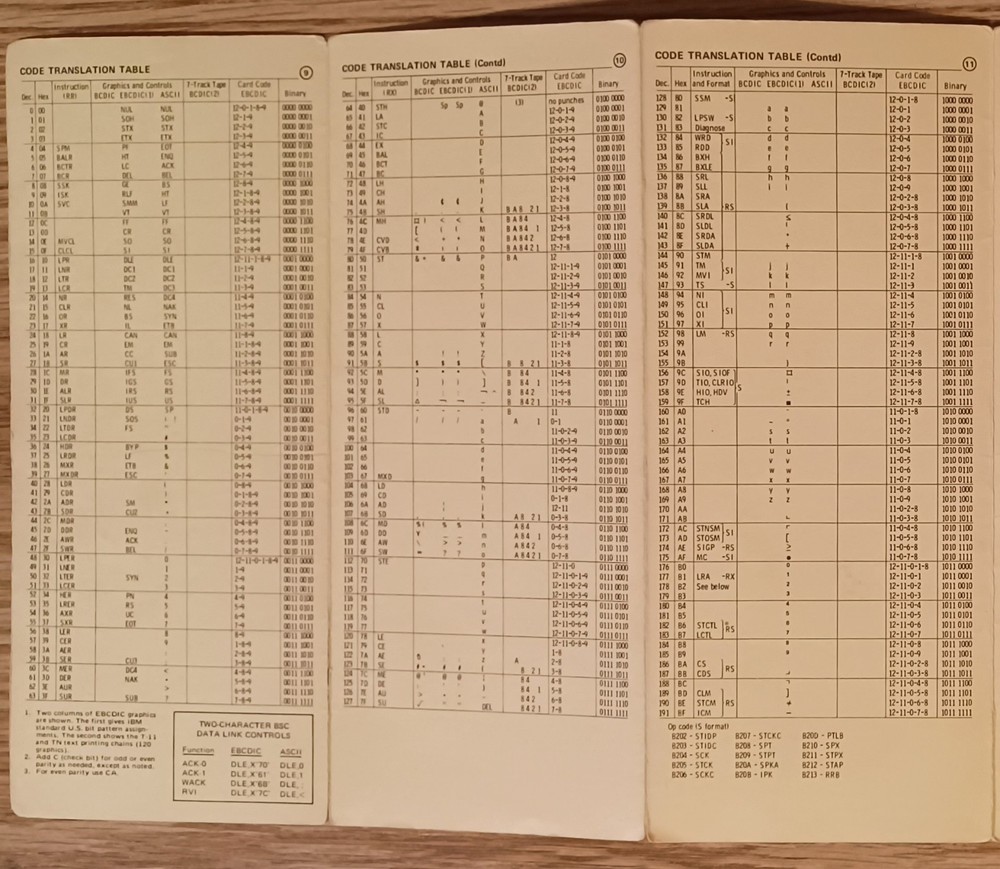 CODE TRANSLATION TABLE 9
Dec. Hex Instruction (RR) Graphics and Controls BCDIC EBCDIC(1) ASCII 7-Track Tape BCDIC(2) Card Code EBCDIC Binary
0 00 NUL NUL 12-0-1-8-9 0000 0000
1 01 SOH SOH 12-1-9 0000 0001
2 02 STX STX 12-2-9 0000 0010
3 03 ETX ETX 12-3-9 0000 0011
4 04 SPM PF EOT 12-4-9 0000 0100
5 05 BALR HT ENQ 12-5-9 0000 0101
6 06 BCTR LC ACK 12-6-9 0000 0110
7 07 BCR DEL BEL 12-7-9 0000 0111
8 08 SSK GE BS 12-8-9 0000 1000
9 09 ISK RLF HT 12-1-8-9 0000 1001
10 0A SVC SMM LF 12-2-8-9 0000 1010
11 0B VT VT 12-3-8-9 0000 1011
12 0C FF FF 12-4-8-9 0000 1100
13 0D CR CR 12-5-8-9 0000 1101
14 0E MVCL SO SO 12-6-8-9 0000 1110
15 0F CLCL SI SI 12-7-8-9 0000 1111
16 10 LPR DLE DLE 12-11-1-8-9 0001 0000
17 11 LNR DC1 DC1 11-1-9 0001 0001
18 12 LTR DC2 DC2 11-2-9 0001 0010
19 13 LCR TM DC3 11-3-9 0001 0011
20 14 NR RES DC4 11-4-9 0001 0100
21 15 CLR NL NAK 11-5-9 0001 0101
22 16 OR BS SYN 11-6-9 0001 0110
23 17 XR IL ETB 11-7-9 0001 0111
24 18 LR CAN CAN 11-8-9 0001 1000
25 19 CR EM EM 11-1-8-9 0001 1001
26 1A AR CC SUB 11-2-8-9 0001 1010
27 1B SR CU1 ESC 11-3-8-9 0001 1011
28 1C MR IFS FS 11-4-8-9 0001 1100
29 1D DR IGS GS 11-5-8-9 0001 1101
30 1E ALR IRS RS 11-6-8-9 0001 1110
31 1F SLR IUS US 11-7-8-9 0001 1111
32 20 LPDR DS SP 11-0-1-8-9 0010 0000
33 21 LNDR SOS ! 0-1-9 0010 0001
34 22 LTDR FS " 0-2-9 0010 0010
35 23 LCDR # 0-3-9 0010 0011
36 24 HDR BYP $ 0-4-9 0010 0100
37 25 LRDR LF % 0-5-9 0010 0101
38 26 MXR ETB & 0-6-9 0010 0110
39 27 MXDR ESC 0-7-9 0010 0111
40 28 LDR 0-8-9 0010 1000
41 29 CDR 0-1-8-9 0010 1001
42 2A ADR SM 0-2-8-9 0010 1010
43 2B SDR CU2 0-3-8-9 0010 1011
44 2C MDR 0-4-8-9 0010 1100
45 2D DDR ENQ 0-5-8-9 0010 1101
46 2E AWR ACK 0-6-8-9 0010 1110
47 2F SWR BEL 0-7-8-9 0010 1111
48 30 LPER 0 12-11-0-1-8-9 0011 0000
49 31 LNER 1 1-9 0011 0001
50 32 LTER SYN 2 2-9 0011 0010
51 33 LCER 3 3-9 0011 0011
52 34 HER PN 4 4-9 0011 0100
53 35 LRER RS 5 5-9 0011 0101
54 36 AXR UC 6 6-9 0011 0110
55 37 SXR EOT 7 7-9 0011 0111
56 38 LER 8 8-9 0011 1000
57 39 CER 9 1-8-9 0011 1001
58 3A AER 2-8-9 0011 1010
59 3B SER CU3 3-8-9 0011 1011
60 3C MER DC4 < 4-8-9 0011 1100
61 3D DER NAK 5-8-9 0011 1101
62 3E AUR > 6-8-9 0011 1110
63 3F SUR SUB ? 7-8-9 0011 1111
1. Two columns of EBCDIC graphics are shown. The first gives IBM standard U.S. bit pattern assignments. The second shows the T-11 and TN text printing chains (120 graphics).
2. Add C (check bit) for odd or even parity as needed, except as noted.
3. For even parity use CA.
TWO-CHARACTER BSC
DATA LINK CONTROLS
Function EBCDIC ASCII
ACK-0 DLE,X'70' DLE,0
ACK-1 DLE,X'61' DLE,1
WACK DLE,X'6B' DLE,;
RVI DLE,X'7C' DLE,<
CODE TRANSLATION TABLE (Contd) 10
Dec. Hex Instruction (RX) Graphics and Controls BCDIC EBCDIC(1) ASCII 7-Track Tape BCDIC(2) Card Code EBCDIC Binary
64 40 STH Sp Sp @ (3) no punches 0100 0000
65 41 LA A 12-0-1-9 0100 0001
66 42 STC B 12-0-2-9 0100 0010
67 43 IC C 12-0-3-9 0100 0011
68 44 EX D 12-0-4-9 0100 0100
69 45 BAL E 12-0-5-9 0100 0101
70 46 BCT F 12-0-6-9 0100 0110
71 47 BC G 12-0-7-9 0100 0111
72 48 LH H 12-0-8-9 0100 1000
73 49 CH I 12-1-8 0100 1001
74 4A AH ¢ ¢ J 12-2-8 0100 1010
75 4B SH . . . K B A 8 2 1 12-3-8 0100 1011
76 4C MH ¤ ) < < L B A 8 4 12-4-8 0100 1100
77 4D [ ( ( M B A 8 4 1 12-5-8 0100 1101
78 4E CVD < + + N B A 8 4 2 12-6-8 0100 1110
79 4F CVB O B A 8 4 2 1 12-7-8 0100 1111
80 50 ST & + & & P B A 12 0101 0000
81 51 Q 12-11-1-9 0101 0001
82 52 R 12-11-2-9 0101 0010
83 53 S 12-11-3-9 0101 0011
84 54 N T 12-11-4-9 0101 0100
85 55 CL U 12-11-5-9 0101 0101
86 56 O V 12-11-6-9 0101 0110
87 57 X W 12-11-7-9 0101 0111
88 58 L X 12-11-8-9 0101 1000
89 59 C Y 11-1-8 0101 1001
90 5A A ! ! Z 11-2-8 0101 1010
91 5B S $ $ $ [ B 8 2 1 11-3-8 0101 1011
92 5C M * * * \ B 8 4 11-4-8 0101 1100
93 5D D ] ) ) ] B 8 4 1 11-5-8 0101 1101
94 5E AL ; ; ; B 8 4 2 11-6-8 0101 1110
95 5F SL B 8 4 2 1 11-7-8 0101 1111
96 60 STD - - - B 11 0110 0000
97 61 / / / a A 1 0-1 0110 0001
98 62 b 11-0-2-9 0110 0010
99 63 c 11-0-3-9 0110 0011
100 64 d 11-0-4-9 0110 0100
101 65 e 11-0-5-9 0110 0101
102 66 f 11-0-6-9 0110 0110
103 67 MXD g 11-0-7-9 0110 0111
104 68 LD h 11-0-8-9 0110 1000
105 69 CD i 0-1-8 0110 1001
106 6A AD j 12-11 0110 1010
107 6B SD , , , k A 8 2 1 0-3-8 0110 1011
108 6C MD % ( % % l A 8 4 0-4-8 0110 1100
109 6D DD m A 8 4 1 0-5-8 0110 1101
110 6E AW \ > > n A 8 4 2 0-6-8 0110 1110
111 6F SW ? ? o A 8 4 2 1 0-7-8 0110 1111
112 70 STE p 12-11-0 0111 0000
113 71 q 12-11-0-1-9 0111 0001
114 72 r 12-11-0-2-9 0111 0010
115 73 s 12-11-0-3-9 0111 0011
116 74 t 12-11-0-4-9 0111 0100
117 75 u 12-11-0-5-9 0111 0101
118 76 v 12-11-0-6-9 0111 0110
119 77 w 12-11-0-7-9 0111 0111
120 78 LE x 12-11-0-8-9 0111 1000
121 79 CE y 1-8 0111 1001
122 7A AE : : z A 2-8 0111 1010
123 7B SE # = # # 8 2 1 3-8 0111 1011
124 7C ME @ ' @ @ 8 4 4-8 0111 1100
125 7D DE 8 4 1 5-8 0111 1101
126 7E AU > = = 8 4 2 6-8 0111 1110
127 7F SU " " DEL 8 4 2 1 7-8 0111 1111
CODE TRANSLATION TABLE (Contd) 11
Dec. Hex Instruction and Format Graphics and Controls BCDIC EBCDIC(1) ASCII 7-Track Tape BCDIC(2) Card Code EBCDIC Binary
128 80 SSM -S 12-0-1-8 1000 0000
129 81 a a 12-0-1 1000 0001
130 82 LPSW -S b b 12-0-2 1000 0010
131 83 Diagnose c c 12-0-3 1000 0011
132 84 WRD SI d d 12-0-4 1000 0100
133 85 RDD e e 12-0-5 1000 0101
134 86 BXH f f 12-0-6 1000 0110
135 87 BXLE g g 12-0-7 1000 0111
136 88 SRL h h 12-0-8 1000 1000
137 89 SLL i i 12-0-9 1000 1001
138 8A SRA 12-0-2-8 1000 1010
139 8B SLA RS { 12-0-3-8 1000 1011
140 8C SRDL ≤ 12-0-4-8 1000 1100
141 8D SLDL ( 12-0-5-8 1000 1101
142 8E SRDA + 12-0-6-8 1000 1110
143 8F SLDA + 12-0-7-8 1000 1111
144 90 STM 12-11-1-8 1001 0000
145 91 TM SI j j 12-11-1 1001 0001
146 92 MVI k k 12-11-2 1001 0010
147 93 TS -S l l 12-11-3 1001 0011
148 94 NI m m 12-11-4 1001 0100
149 95 CLI SI n n 12-11-5 1001 0101
150 96 OI o o 12-11-6 1001 0110
151 97 XI p p 12-11-7 1001 0111
152 98 LM -RS q q 12-11-8 1001 1000
153 99 r r 12-11-9 1001 1001
154 9A 12-11-2-8 1001 1010
155 9B } 12-11-3-8 1001 1011
156 9C SIO, SIOF ¤ 12-11-4-8 1001 1100
157 9D TIO, CLRIO S ) 12-11-5-8 1001 1101
158 9E HIO, HDV ± 12-11-6-8 1001 1110
159 9F TCH ■ 12-11-7-8 1001 1111
160 A0 - 11-0-1-8 1010 0000
161 A1 ~ ° 11-0-1 1010 0001
162 A2 s s 11-0-2 1010 0010
163 A3 t t 11-0-3 1010 0011
164 A4 u u 11-0-4 1010 0100
165 A5 v v 11-0-5 1010 0101
166 A6 w w 11-0-6 1010 0110
167 A7 x x 11-0-7 1010 0111
168 A8 y y 11-0-8 1010 1000
169 A9 z z 11-0-9 1010 1001
170 AA 11-0-2-8 1010 1010
171 AB 11-0-3-8 1010 1011
172 AC STNSM SI ┌ 11-0-4-8 1010 1100
173 AD STOSM [ 11-0-5-8 1010 1101
174 AE SIGP -RS ≥ 11-0-6-8 1010 1110
175 AF MC -SI • 11-0-7-8 1010 1111
176 B0 0 12-11-0-1-8 1011 0000
177 B1 LRA -RX 1 12-11-0-1 1011 0001
178 B2 See below 2 12-11-0-2 1011 0010
179 B3 3 12-11-0-3 1011 0011
180 B4 4 12-11-0-4 1011 0100
181 B5 5 12-11-0-5 1011 0101
182 B6 STCTL RS 6 12-11-0-6 1011 0110
183 B7 LCTL 7 12-11-0-7 1011 0111
184 B8 8 12-11-0-8 1011 1000
185 B9 9 12-11-0-9 1011 1001
186 BA CS RS 12-11-0-2-8 1011 1010
187 BB CDS ┘ 12-11-0-3-8 1011 1011
188 BC ┐ 12-11-0-4-8 1011 1100
189 BD CLM ] 12-11-0-5-8 1011 1101
190 BE STCM RS ≠ 12-11-0-6-8 1011 1110
191 BF ICM — 12-11-0-7-8 1011 1111
Op code (S format)
B202 - STIDP B207 - STCKC B20D - PTLB
B203 - STIDC B208 - SPT B210 - SPX
B204 - SCK B209 - STPT B211 - STPX
B205 - STCK B20A - SPKA B212 - STAP
B206 - SCKC B20B - IPK B213 - RRB